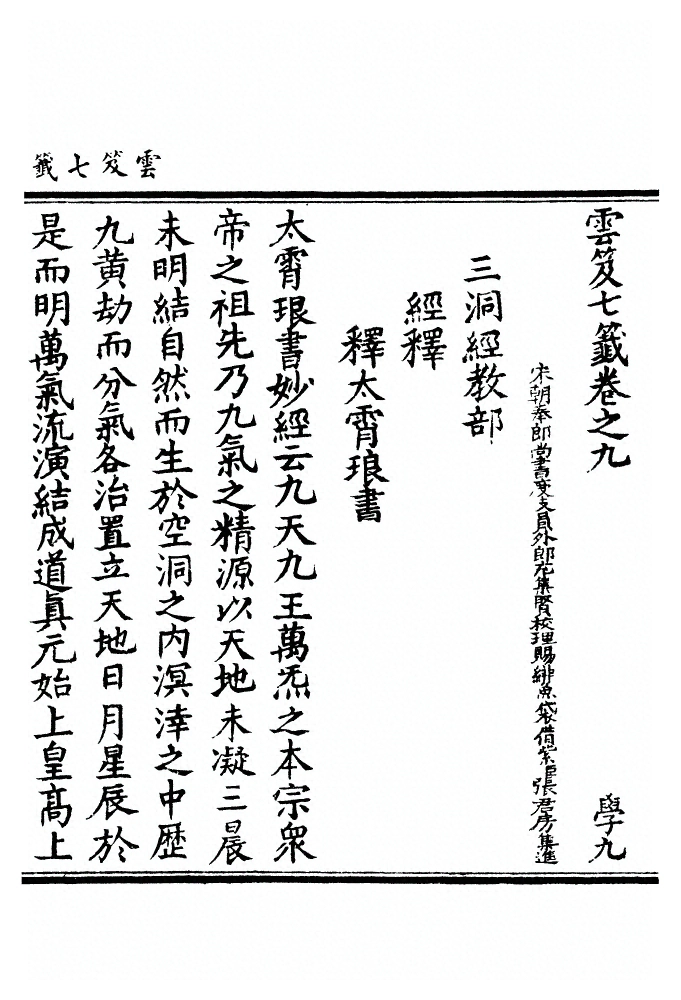 雲笈七籤
雲笈七籤卷之九 學九
宋朝奉郎尚書度支員外郎充集賢校理賜緋魚袋借紫臣張君房集進
三洞經教部
經釋
釋太霄琅書
太霄琅書妙經云九天九王萬炁之本宗衆
帝之祖先乃九氣之精源以天地未凝三晨
未明結自然而生於空洞之内溟涬之中歷
九黄劫而分氣各治置立天地日月星辰於
是而明萬氣流演結成道真元始上皇髙上